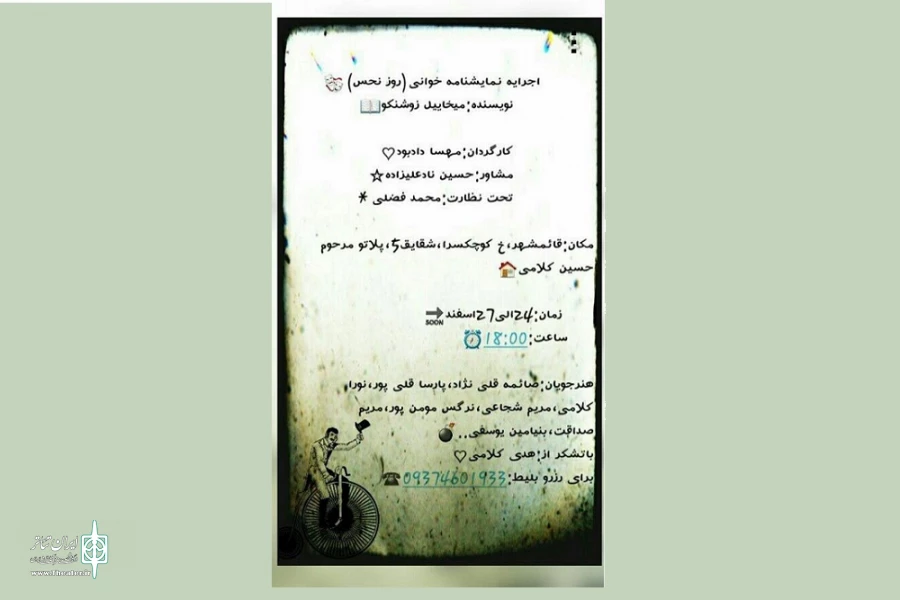 اجرایه نمایشنامه خوانی (روز نحس)
نویسنده:میخاییل زوشنکو
کارگردان:مهسا دادبود♡
مشاور:حسین نادعلیزاده☆
تحت نظارت:محمد فضلی *
مکان:قائمشهر،خ کوچکسرا،شقایق5،پلاتو مرحوم
حسین کلامی
زمان:24الی27اسفند SOON
ساعت:18:00
هنرجویان:صائمه قلی نژاد،پارسا قلی پور،نورا
کلامی،مریم شجاعی،نرگس مومن پور،مریم
صداقت،بنیامین یوسفی..
باتشکر از:هدی کلامی♡
برای رزرو بلیط:09374601933
ایران تئاتر
www.Theater.ir